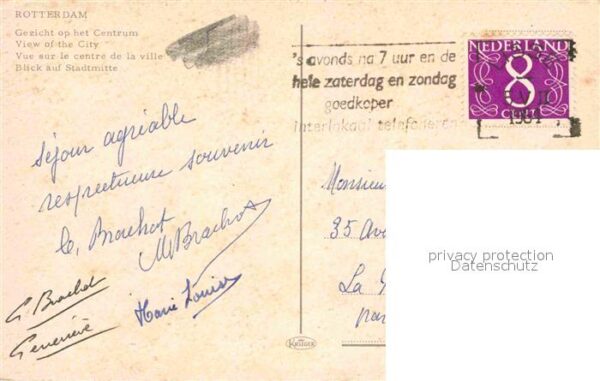 ROTTERDAM
Gezicht op het Centrum
View of the City
Vue sur le centre de la ville
Blick auf Stadtmitte
's avonds na 7 uur en de
hele zaterdag en zondag
goedkoper
interlokaal telefoneren
NEDERLAND
8
CENT
Séjour agréable
respectueux souvenir
G. Brachot
M Brachot
G. Brachot
Geneviève
Marie Louise
Monsieur
35 Ave
La G
par
KRÜGER
privacy protection
Datenschutz